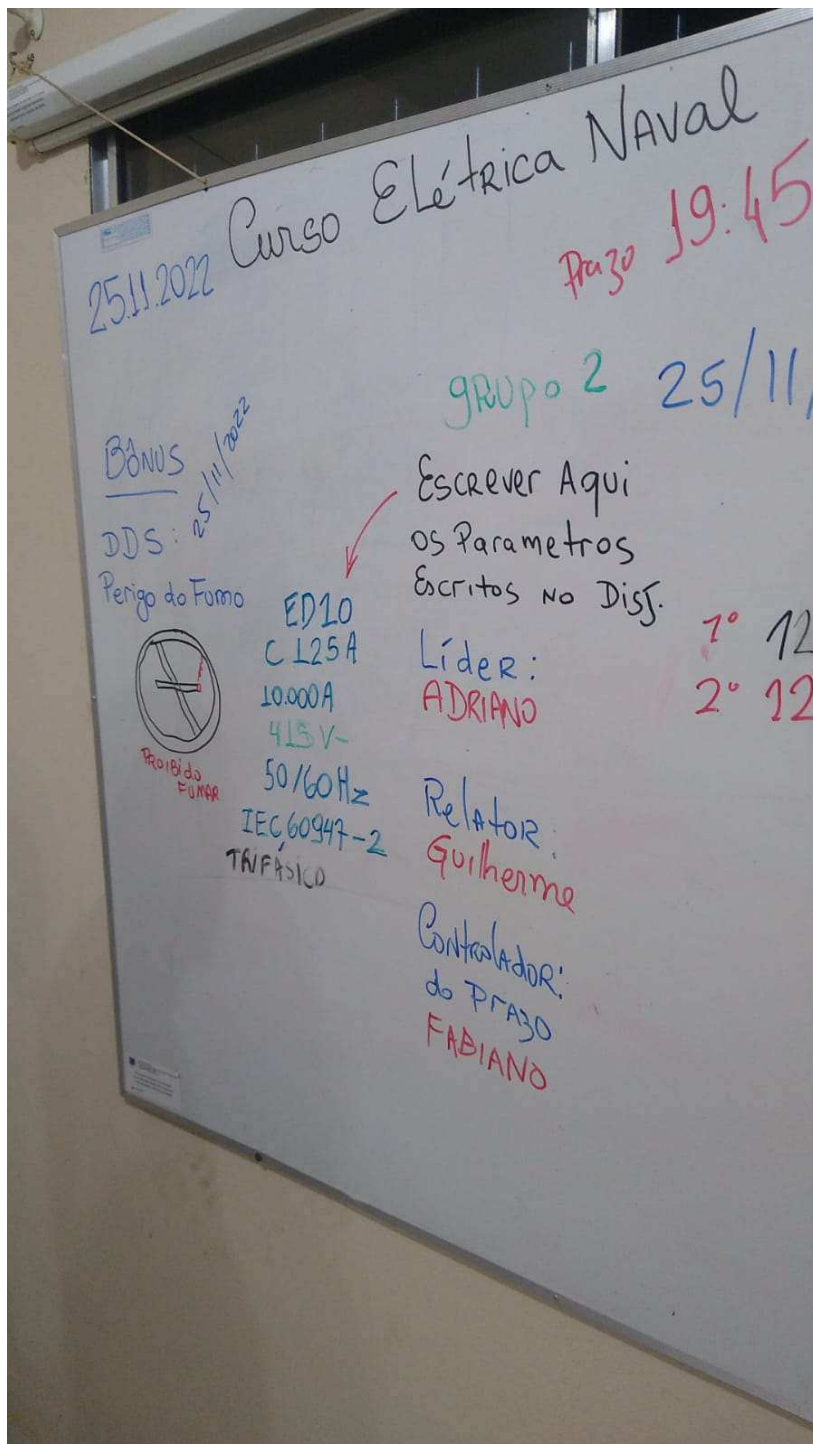 Curso Elétrica Naval
25.11.2022
Prazo 19:45
grupo 2 25/11/
Bônus
DDS: 25/11/2022
Perigo do Fumo
PROIBIDO
FUMAR
Escrever Aqui
os Parametros
Escritos no Disj.
ED10
C 125A
10.000A
415V~
50/60Hz
IEC 60947-2
TRIFÁSICO
Líder:
ADRIANO
1° 12
2° 12
Relator:
Guilherme
Controlador:
do Prazo
FABIANO